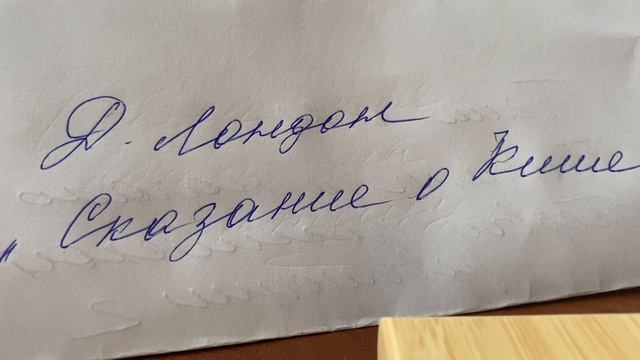 Д. Лондон
„ Сказание о Кише